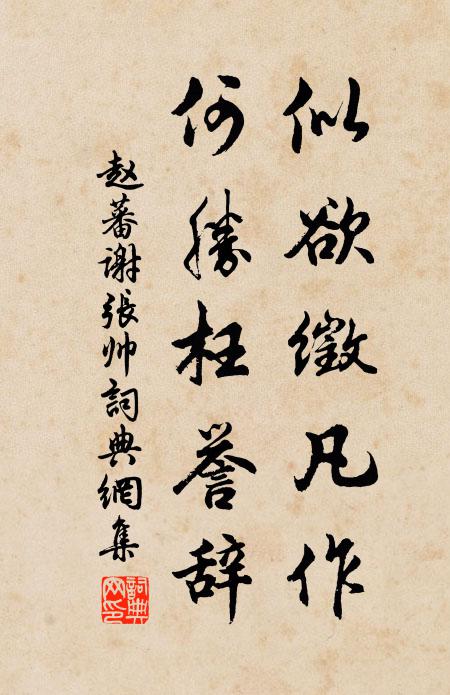 似欲徵凡作
何勝枉誉辞
赵蕃谢張帅詞典網集
詞典網印